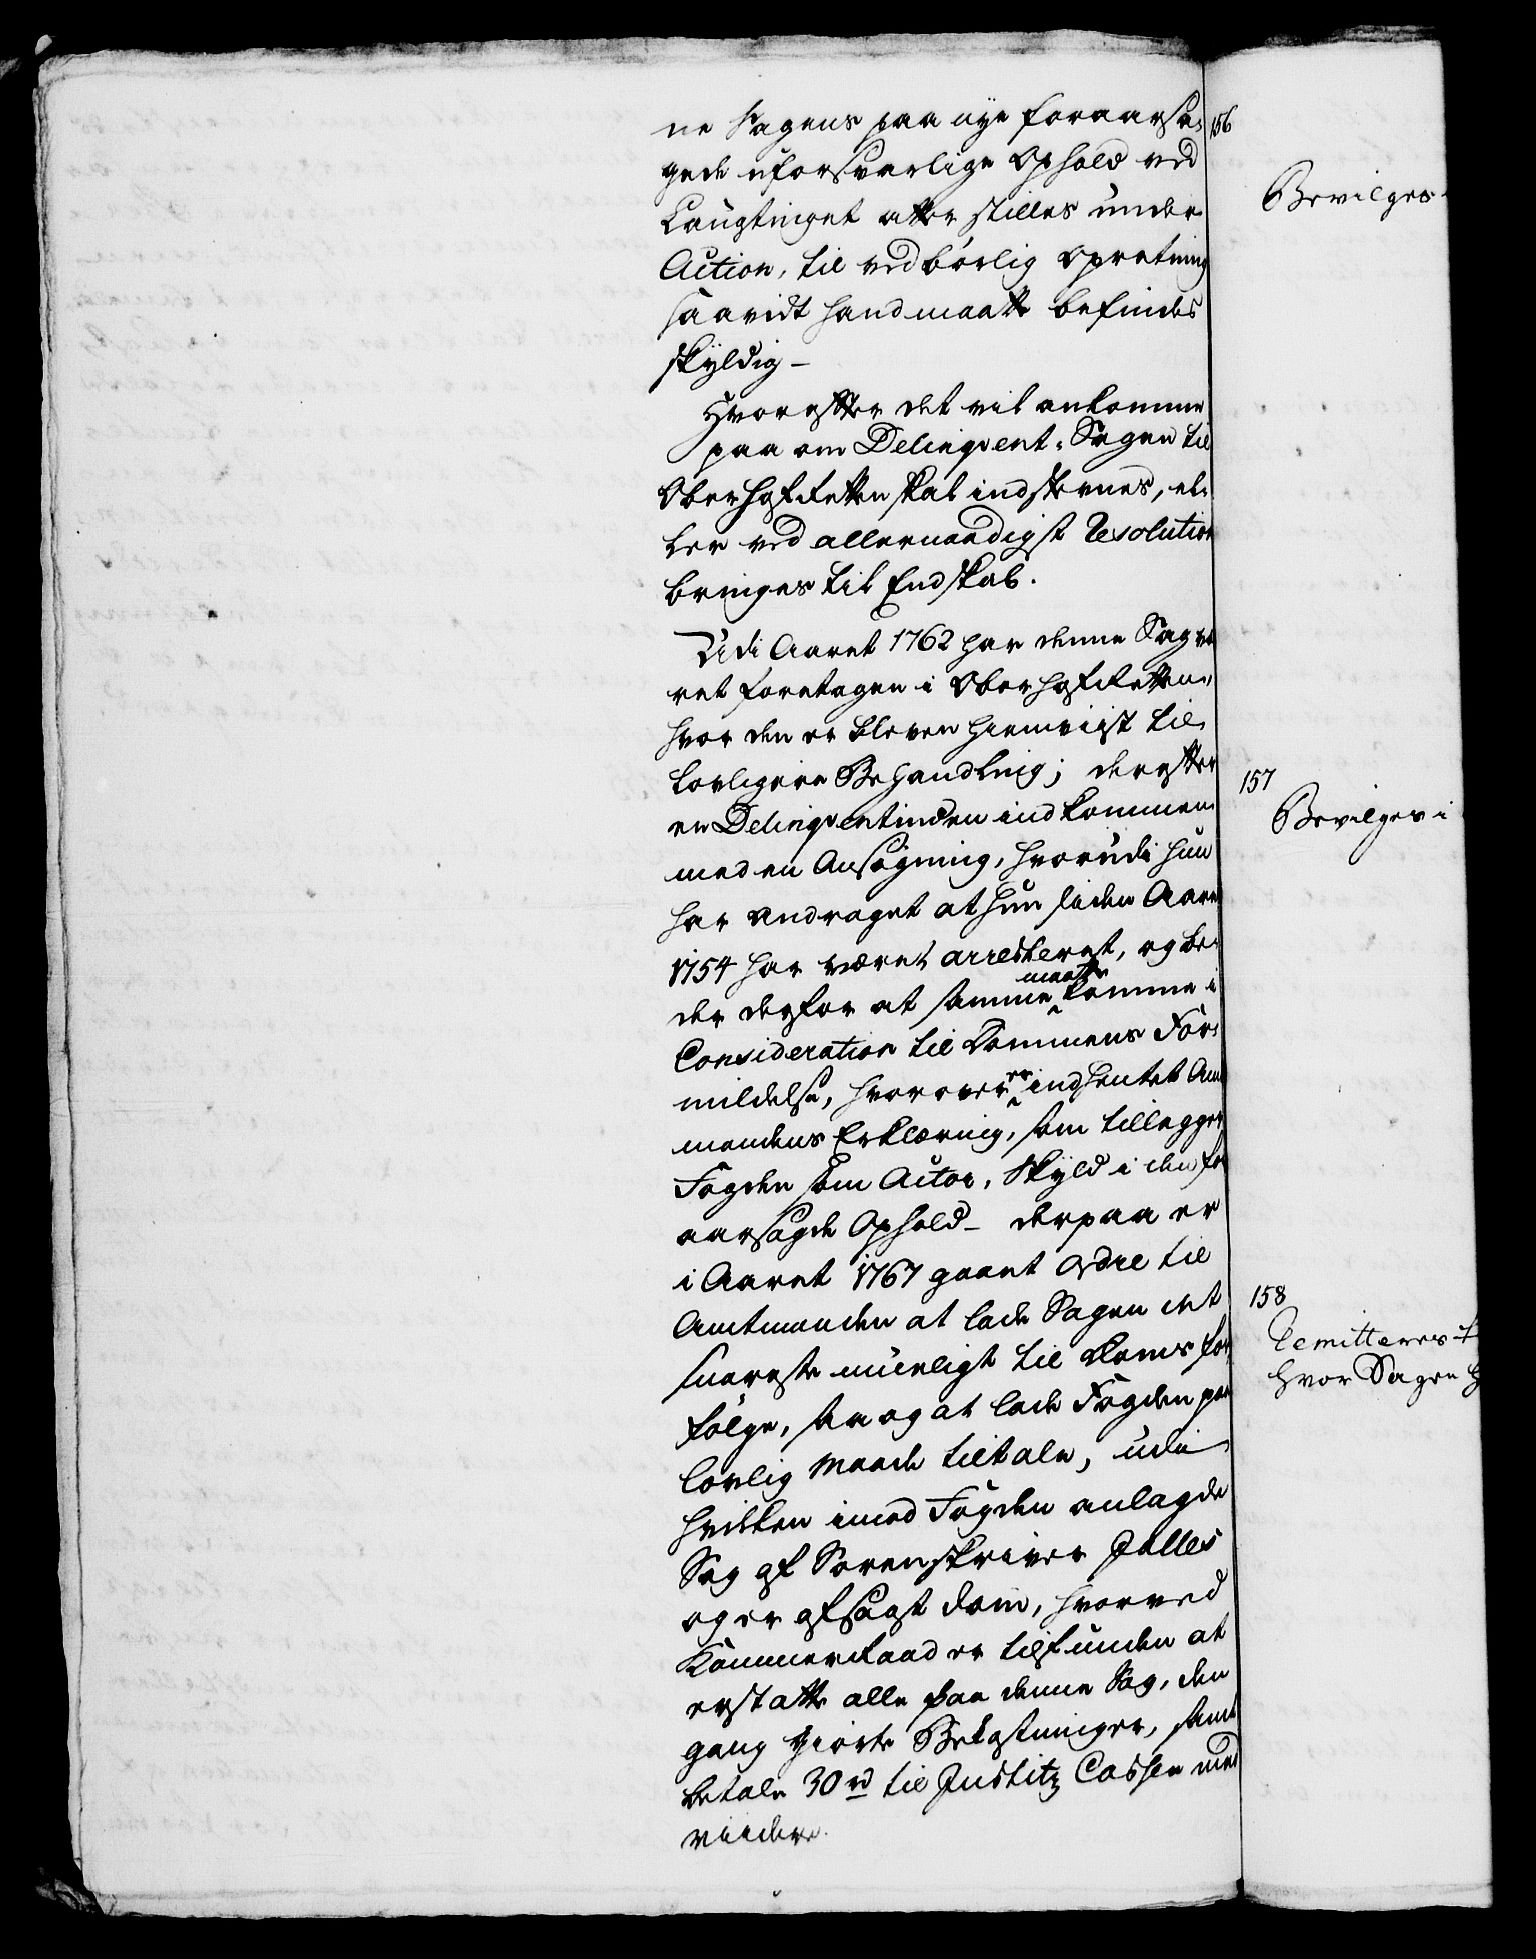 ne Sagens paa nye foraarsa-
gede uforsvarlige Ophold ved
Laugtinget atter stilles under
Action, til vedbørlig Opretning
saavidt hand maatte befindes
skyldig -
Hvorefter det vil ankomme
paa om Delinqvent-Sagen til
OberhofRetten skal indstevnes, el-
ler ved allernaadigst Resolution
bringes til Endskab.
Udi Aaret 1762 har denne Sag væ
ret foretagen i OberhofRetten,
hvor den er bleven hiemviist til
lovligere Behandling; derefter
er Delinqventinden indkommen
med en Ansøgning, hvorudi hun
har andraget at hun siden Aaret
1754 har været arresteret, og be-
der derfor at samme maatte komme i
Consideration til Dommens For-
mildelse, hvorover er indhentet Amt
mandens Erklæring, som tillegger
Fogden som Actor, Skyld i den for
aarsagede Ophold - derpaa er
i Aaret 1767 gaaet Ordre til
Amtmanden at lade Sagen det
snareste mueligt til Doms for
følge, saa og at lade Fogden paa
lovlig Maade tiltale, udi
hvilken imod Fogden anlagde
Sag af Sorenskriver Jelles
og er afsagt Dom, hvorved
Kammerraad er tilfunden at
erstatte alle paa denne Sag, den
gang giorte Bekostninger, samt
betale 30 rd til Justitz Cassen med
viidere.
156
Bevilges
157
Bevilges i
158
Remitteres t
hvor Sagen h